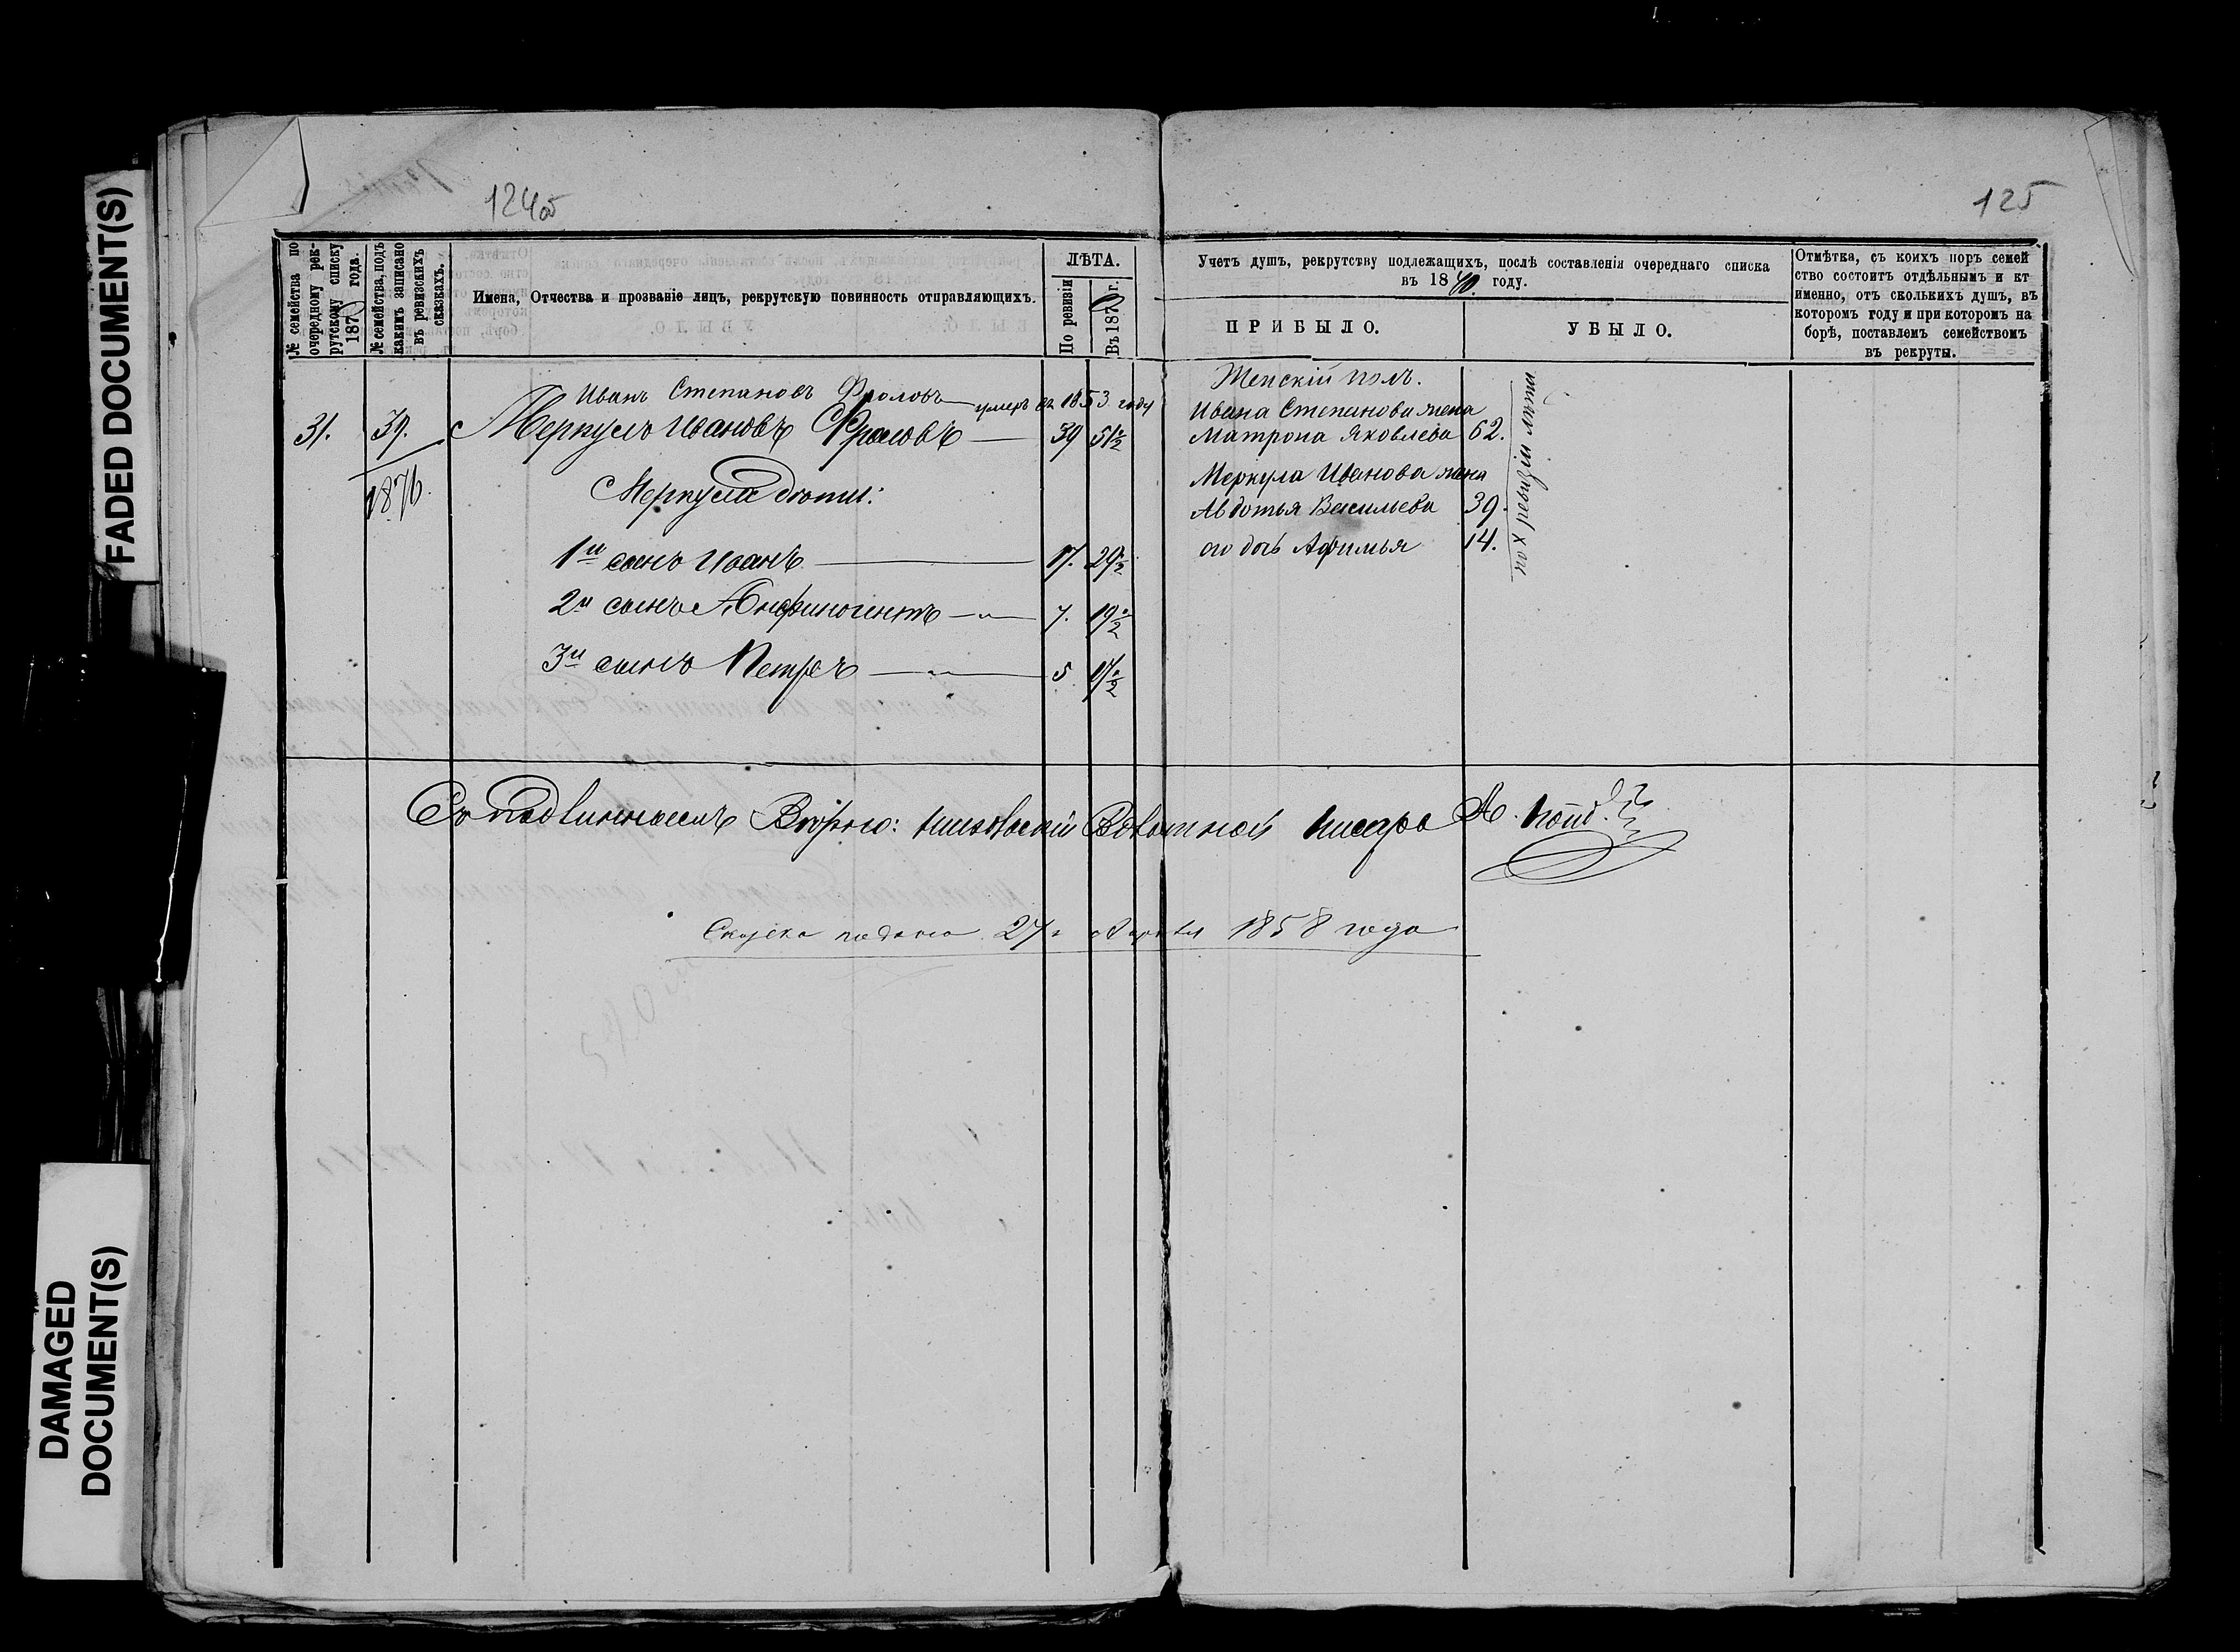 FADED DOCUMENT(S)
DAMAGED
DOCUMENT(S)
124об
125
№ семейства по
очередному рек-
рутскому списку
1870 года.
№ семейства, подъ
какимъ записано
въ ревизскихъ
сказкахъ.
Имена, Отчества и прозваніе лицъ, рекрутскую повинность отправляющихъ.
ЛѢТА.
По ревизіи
Въ 1870 г.
Учетъ душъ, рекрутству подлежащихъ, послѣ составленія очереднаго списка
въ 1870. году.
ПРИБЫЛО.
УБЫЛО.
Отмѣтка, съ коихъ поръ семей
ство состоитъ отдѣльнымъ и кт
именно, отъ сколькихъ душъ, въ
которомъ году и при которомъ на
борѣ, поставлемъ семействомъ
въ рекруты.
Иванъ Степановъ Фроловъ умеръ въ 1853 году
31. 39. Меркулъ Ивановъ Фроловъ — 39 51½
1876.
Меркула дѣти:
1й сынъ Иванъ — 17. 29½
2й сынъ Анфиногентъ — " — 7. 19½
3й сынъ Петръ — " — 5 17½
Женскій полъ.
Ивана Степанова жена
Матрона Яковлева 62.
Меркула Иванова жена
Авдотья Васильева 39.
его дочь Афимья 14.
по X ревизіи лѣта
Съ подлиннымъ Вѣрно: Волостной писарь А.
Сказка подана 27го Апрѣля 1858 года